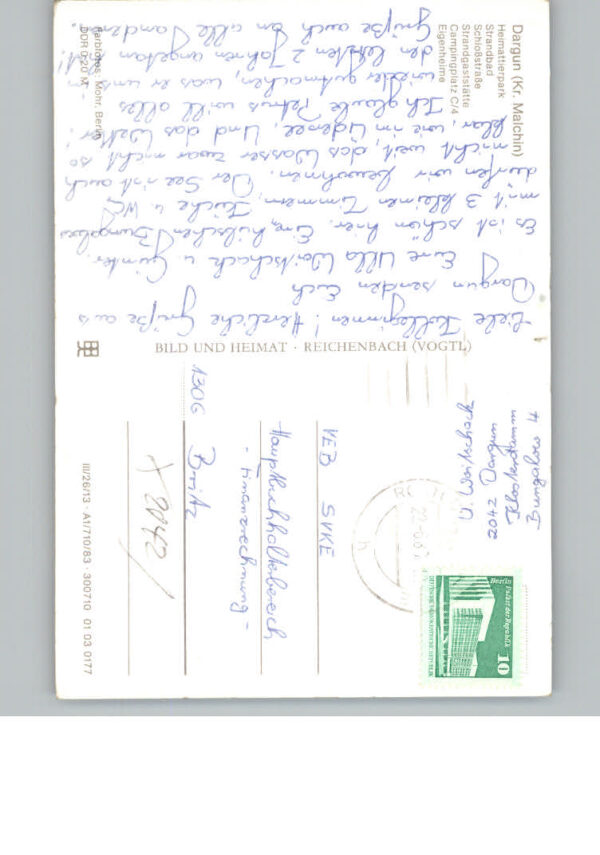 Dargun (Kr. Malchin)
Heimattierpark
Strandbad
Schloßstraße
Strandgaststätte
Campingplatz C/4
Eigenheime
Liebe Kolleginnen! Herzliche Grüße aus
Dargun senden Euch
Eure Ulla Woitschach u. Günter.
Es ist schön hier. Einen hübschen Bungalow
mit 3 kleinen Zimmern, Küche u. WC
dürfen wir bewohnen. Der See ist auch
nicht weit, das Wasser zwar nicht so
klar, wie im Üdersee. Und das Wetter!
Ich glaube Petrus will alles
wieder gutmachen, was er uns in
den letzten 2 Jahren angetan hat.
Grüße auch an alle anderen.
Farbfotos: Mohr, Berlin
DDR 0,20 M
BILD UND HEIMAT · REICHENBACH (VOGTL)
U. Woitschach
2042 Dargun
Klosterdamm
Bungalow 4
Berlin Palast der Republik
DEUTSCHE DEMOKRATISCHE REPUBLIK
10
VEB SVKE
Hauptbuchhalterbereich
- Finanzrechnung -
1306 Britz
X 2042
III/26/13 · A1/710/83 · 300710 01 03 0177